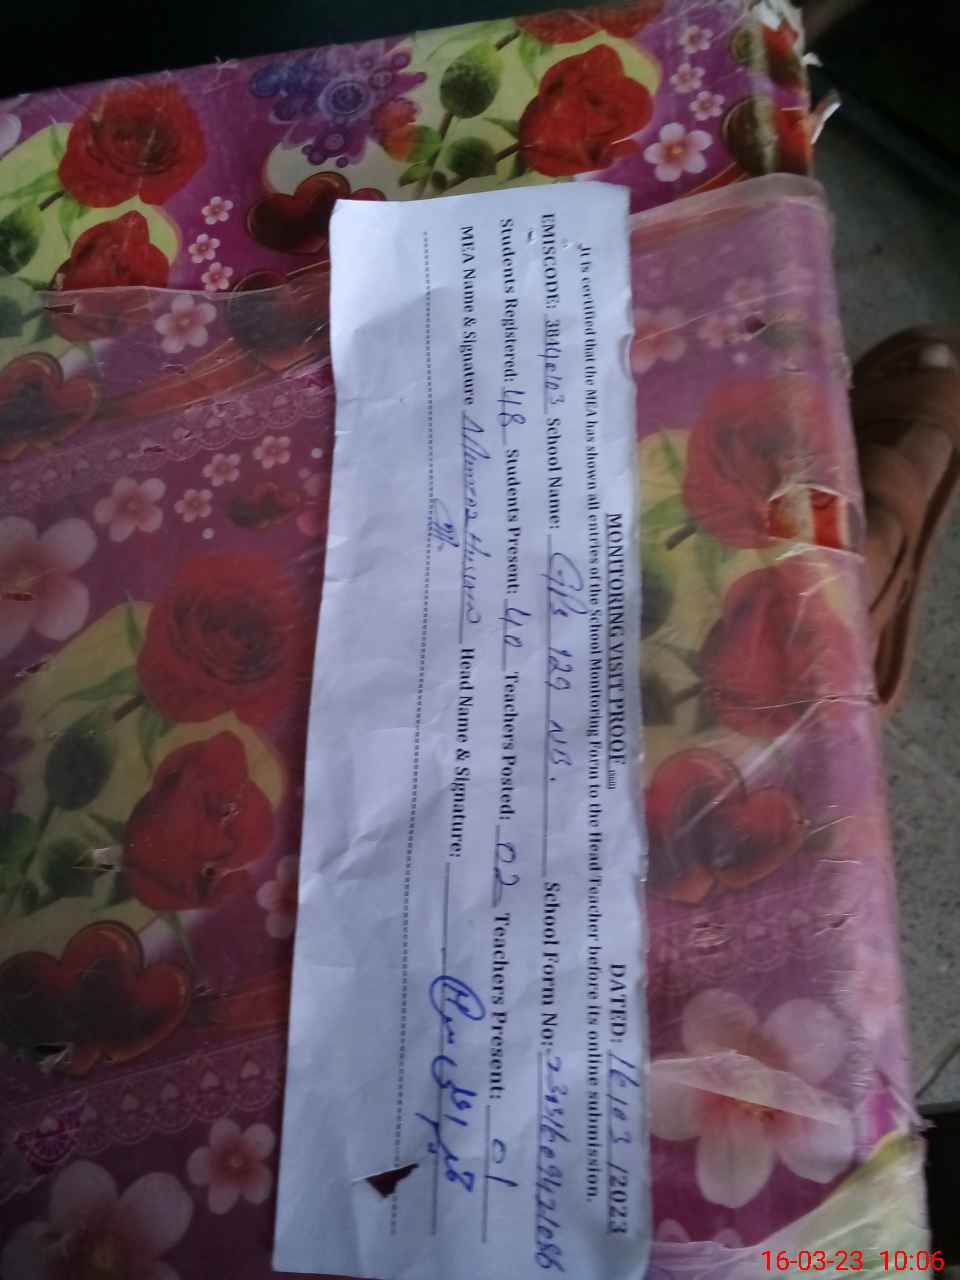 MONITORING VISIT PROOF DATED: 16/03/2023
It is certified that the MEA has shown all entries of the School Monitoring Form to the Head Teacher before its online submission.
EMISCODE: School Name: 129 NB. School Form No:
Students Registered: 48 Students Present: 40 Teachers Posted: 02 Teachers Present: 01
MEA Name & Signature Head Name & Signature:
16-03-23 10:06